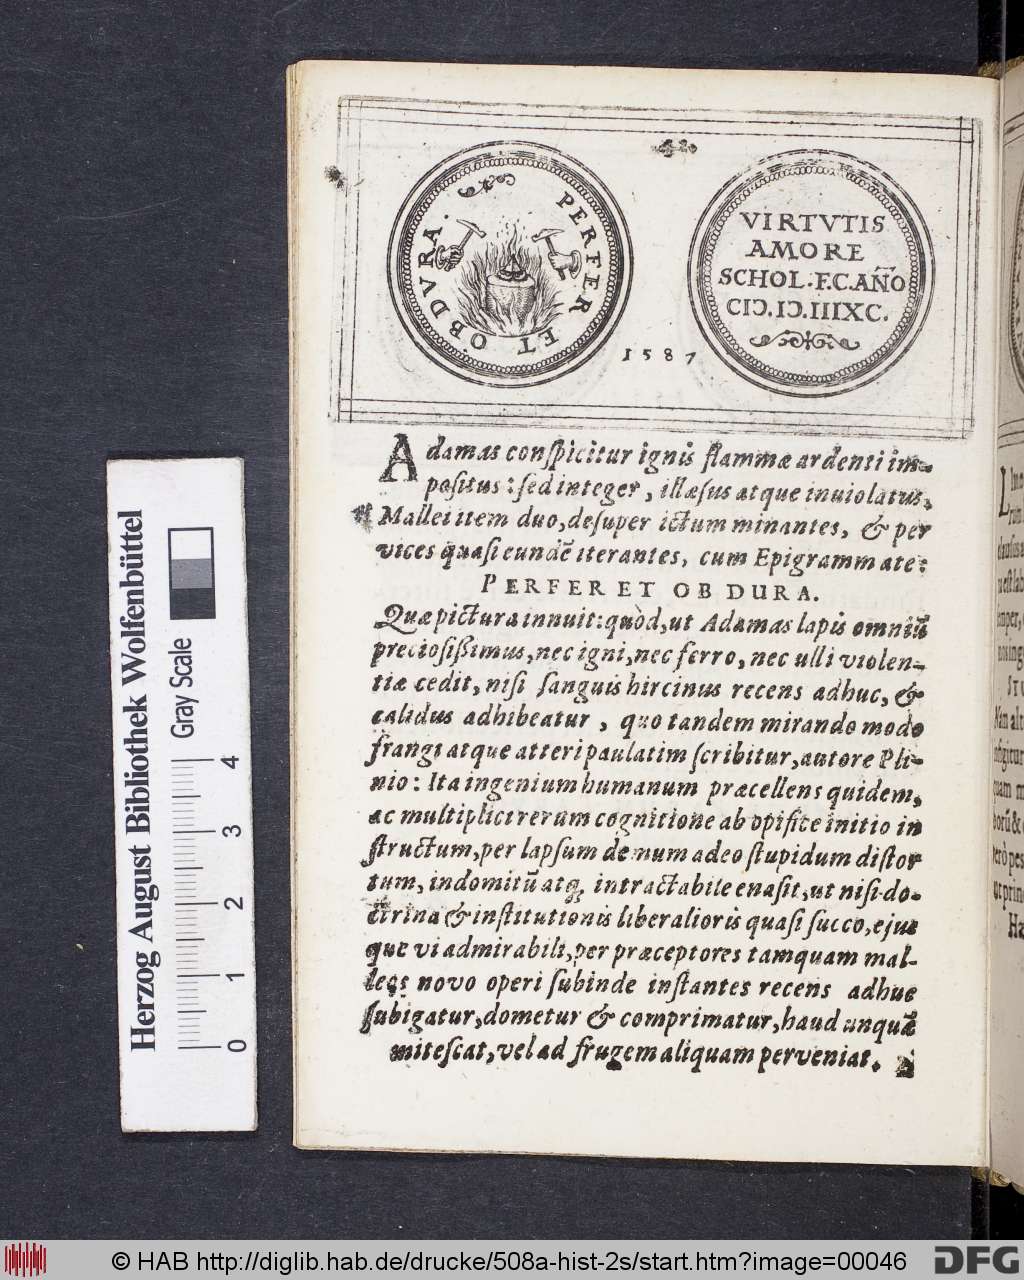 PERFER ET OBDVRA.
VIRTVTIS
AMORE
SCHOL. F. C. AÑO
CIƆ. IƆ. IIIXC.
1587
Adamas conspicitur ignis flammæ ardenti im-
positus: sed integer, illæsus atque inuiolatus,
Mallei item duo, desuper ictum minantes, & per
vices quasi eundē iterantes, cum Epigrammate:
PERFER ET OBDURA.
Quæ pictura innuit: quòd, ut Adamas lapis omniũ
preciosißimus, nec igni, nec ferro, nec ulli violen-
tiæ cedit, nisi sanguis hircinus recens adhuc, &
calidus adhibeatur, quo tandem mirando modo
frangi atque atteri paulatim scribitur, autore Pli-
nio: Ita ingenium humanum præcellens quidem,
ac multiplici rerum cognitione ab opifice initio in
structum, per lapsum demum adeo stupidum distor
tum, indomitũ atq; intractabile enasit, ut nisi do-
ctrina & institutionis liberalioris quasi succo, ejus
que vi admirabili, per præceptores tamquam mal-
leos novo operi subinde instantes recens adhuc
subigatur, dometur & comprimatur, haud unquã
mitescat, vel ad frugem aliquam perveniat.
Herzog August Bibliothek Wolfenbüttel
Gray Scale
0 1 2 3 4
© HAB http://diglib.hab.de/drucke/508a-hist-2s/start.htm?image=00046
DFG